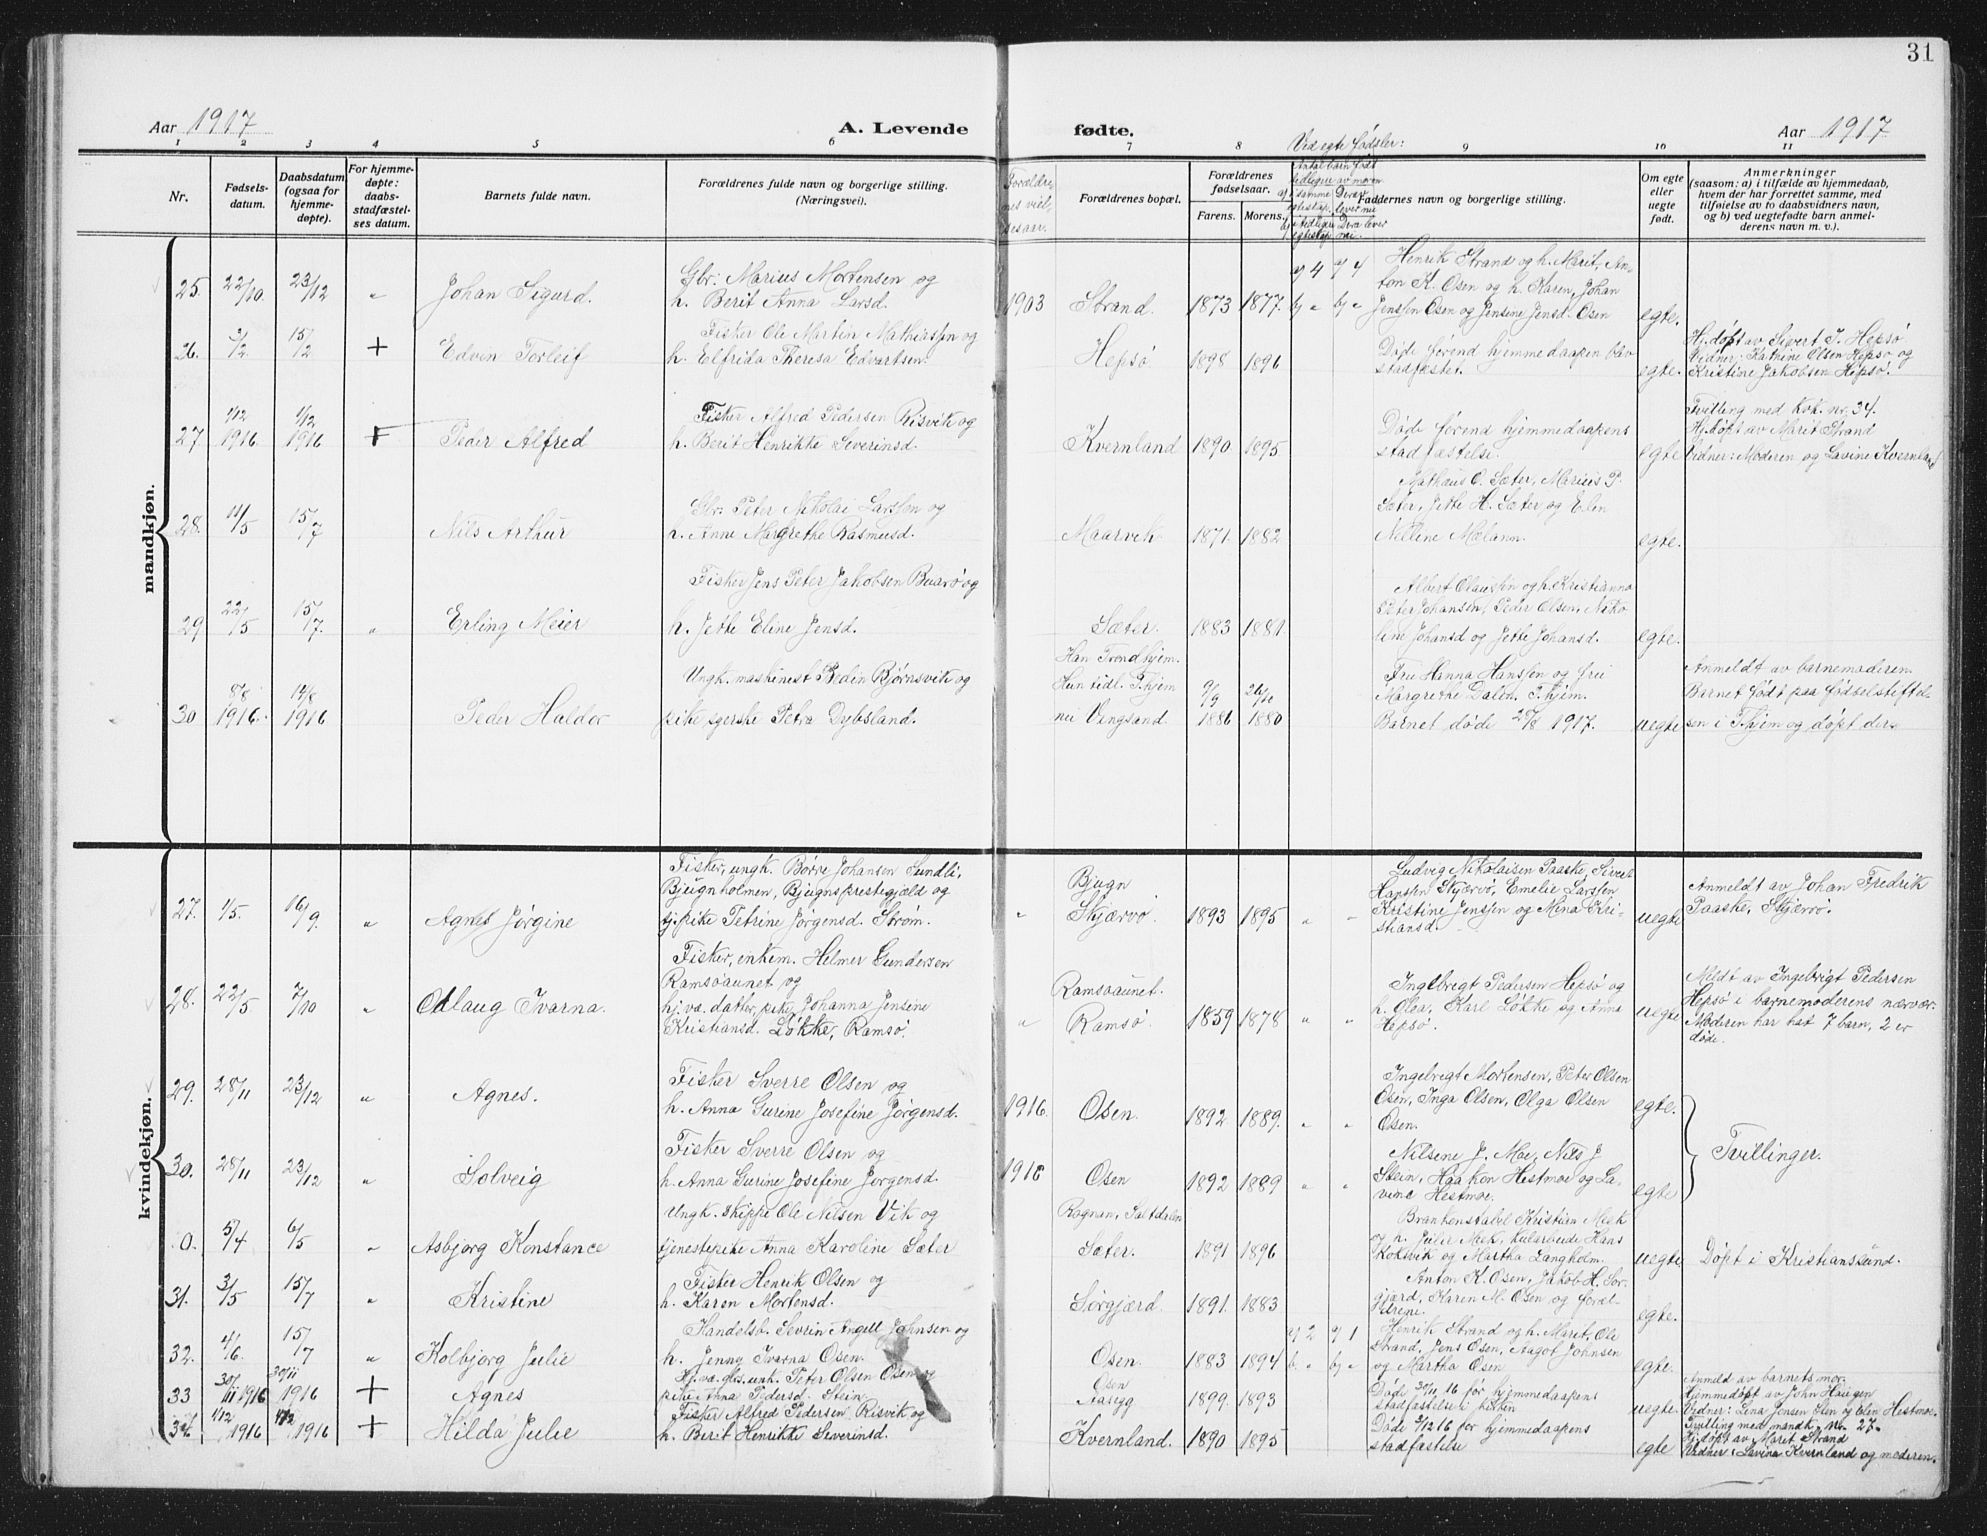 31
Aar 1917
A. Levende
fødte.
Aar 1917
1 2 3 4 5 6 7 8 9 10 11
Ved egte fødsler:
Nr.
Fødsels-
datum.
Daabsdatum
(ogsaa for
hjemme-
døpte).
For hjemme-
døpte:
daabs-
stadfæstel-
ses datum.
Barnets fulde navn.
Forældrenes fulde navn og borgerlige stilling.
(Næringsvei).
Forældrenes bopæl.
Forældrenes
fødselsaar.
Farens. Morens.
Faddernes navn og borgerlige stilling.
Om egte
eller
uegte
født.
Anmerkninger
(saasom: a) i tilfælde av hjemmedaab,
hvem der har forrettet samme, med
tilføielse av to daabsvidners navn,
og b) ved uegtefødte barn anmel-
derens navn m. v.).
mandkjøn.
25. 22/10. 23/12 " Johan Sigurd.
Gbr: Marius Mortensen og
h. Berit Anna Larsd.
1903 Strand. 1873 1877. a) 4 a) 4 b) " b) "
Henrik Strand og h. Marit, An-
ton K. Osen og h. Karen, Johan
Jenssen Osen og Jensine Jensd. Osen
egte.
26. 3/12. 15/12 + Edvin Torleif
Fisker Ole Martin Mathiassen og
h. Elfrida Theresa Edvartsen.
Hepsø 1898 1896
Døde førend hjemmedaapen blev
stadfæstet.
egte.
Hj.døpt av Sivert J. Hepsø
Vidner: Kathrine Olsen Hepsø og
Kristine Jakobsen Hepsø.
27. 1/12 1916 1/12 1916 + Peder Alfred
Fisker Alfred Pedersen Risvik og
h. Berit Henrikke Severinsd.
Kvernland 1890 1895
Døde førend hjemmedaapens
stadfæstelse.
egte
Tvilling med kvk. nr. 34.
Hj.døpt av Marit Strand
Vidner: Moderen og Lavine Kvernland
28. 11/5 15/7 Nils Arthur
Gbr: Peter Nikolai Larssen og
h. Anne Margrethe Rasmusd.
Maarvik 1871 1882
Mathæus O. Sæter, Marius P.
Sæter, Jette H. Sæter og Elen
Nelline Mælann.
egte.
29 22/5 15/7. " Erling Meier
Fisker Jens Peter Jakobsen Buarø og
h. Jette Eline Jensd.
Sæter. 1883 1881.
Albert Olaussen og h. Kristianna
Peter Johansen, Peder Olsen, Niko
line Johansd og Jette Johansd.
egte.
30 8/8 1916. 14/8 1916 Peder Haldor
Ungk. maskinest Pedin Bjørnsvik og
pike sgerske Petra Dybsland.
Han Trondhjem.
Hun tidl. T.hjem
nu Vingsand. 9/9 1886 26/12 1880
Fru Hanna Hanssen og fru
Margrethe Dalen, T.hjem.
Barnet døde 27/8 1917.
uegte
Anmeldt av barnemoderen
Barnet født paa fødselstiftel-
sen i T.hjem og døpt der.
kvindekjøn.
27. 1/5. 16/9. " Agnes Jørgine
Fisker, ungk. Børre Johansen Sundli,
Bjugnholmen, Bjugns prestegjæld og
tj.pike Petrine Jørgensd. Strøm.
" Bjugn
Skjærvø. 1893 1895 " "
Ludvig Nikolaisen Paaske, Sivert
Hansen Skjærvø, Emelie Larssen
Kristine Jenssen og Mina Kri-
stiansd.
uegte
Anmeldt av Johan Fredrik
Paaske, Skjærvø.
28. 22/5 7/10 " Odlaug Ivarna.
Fisker, enkem. Helmer Gundersen
Ramsøaunet og
hj.va. datter, pike Johanna Jensine
Kristiansd. Løkke, Ramsø.
" Ramsøaunet.
Ramsø. 1859 1878 " "
Ingebregt Pedersen Hepsø og
h. Olea, Karl Løkke og Anna
Hepsø.
uegte
Meldt av Ingebrigt Pedersen
Hepsø i barnemoderens nærvær.
Moderen har hat 7 barn, 2 er
døde.
29. 28/11 23/12 " Agnes.
Fisker Sverre Olsen og
h. Anna Gurine Josefine Jørgensd.
1916. Osen. 1892 1889. " "
Ingebregt Mortensen, Peter Olsen
Osen, Inga Olsen, Olga Olsen
Osen.
egte.
Tvillinger.
30. 28/11 23/12 " Solveig
Fisker Sverre Olsen og
h. Anna Gurine Josefine Jørgensd.
1916 Osen 1892 1889 " "
Nilsene J. Moe, Nils J.
Stein, Haakon Hestmoe og La-
vine Hestmoe.
egte
0. 5/4 6/5 " Asbjørg Konstance
Ungk. skipper Ole Nilsen Vik og
tjenestepike Anna Karoline Sæter
Rognan, Saltdalen
Sæter. 1891 1896
Brankenstabel Kristian Meek
og h. Julie Meek, Hans
Koksvik og Martha Langholm.
uegte
Døpt i Kristianssund.
31. 3/5 15/7 " Kristine
Fisker Henrik Olsen og
h. Karen Mortensd.
Sørgjærd. 1891. 1883
Anton K. Osen, Jakob H. Sør-
gjærd, Karen M. Osen og foræl-
drene.
egte.
32. 4/6. 15/7 " Kolbjørg Julie
Handelsb. Sevrin Angell Johnsen og
h. Jenny Ivarna Osen.
Osen. 1883 1894 a) 2 a) 1 b. " b) "
Henrik Strand og h. Marit, Ole
Strand, Jens Osen, Aagot Johnsen
og Martha Osen
egte.
33 30/11 1916 30/11 1916 + Agnes
Hj.va. gls. unk. Peter Olsen Osen og
pike Anna Pedersd. Stein
Osen
Aasegg 1899. 1893
Døde 30/11 16 før hjemmedaapens
stadfæstelse i kirken
uegte.
Anmeld av barnets mor.
Hjemmedøpt av John Haugen
Vidner: Lina Jensen Osen og Elen Hestmo.
34 1/12 1916 1/12 1916 + Hilda Julie
Fisker Alfred Pedersen Risvik og
h. Berit Henrikke Severinsd.
Kvernland. 1890 1895
Døde 3/12 16 før hjemmedaapens
stadfæstelse
egte
Tvilling med mandk. nr. 27.
Hj.døpt av Marit Strand
Vidner: Lavina Kvernland og moderen.